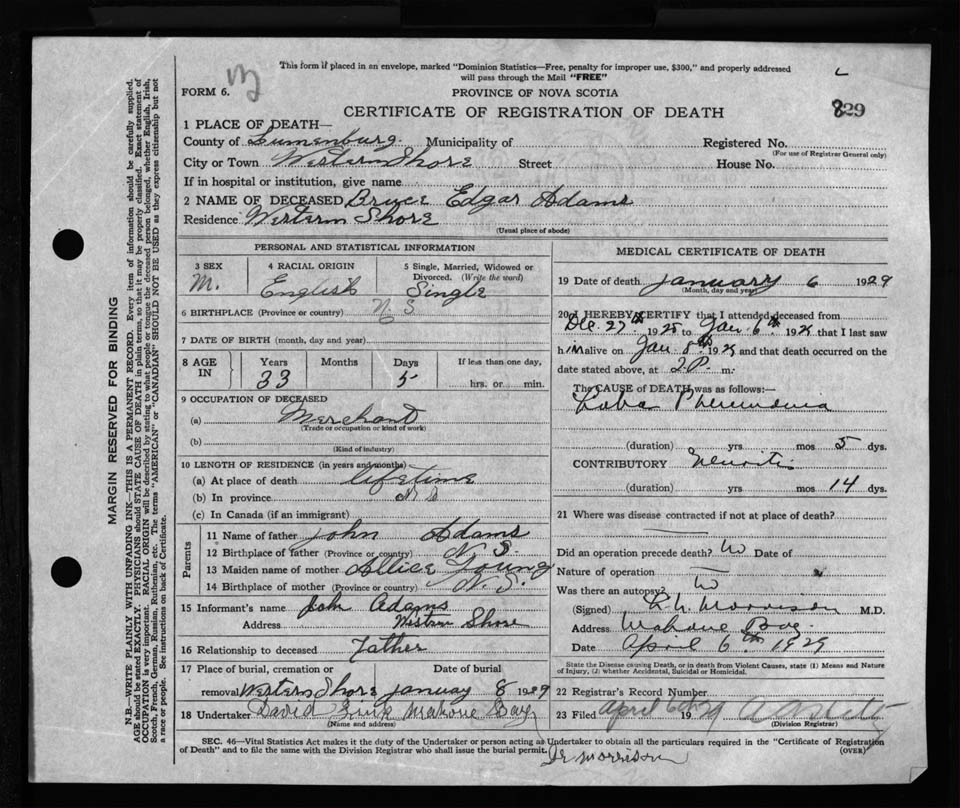 This form if placed in an envelope, marked "Dominion Statistics—Free, penalty for improper use, $300," and properly addressed
will pass through the Mail "FREE"
FORM 6.
PROVINCE OF NOVA SCOTIA
829
CERTIFICATE OF REGISTRATION OF DEATH
1 PLACE OF DEATH—
County of Lunenburg Municipality of Registered No.
(For use of Registrar General only)
City or Town Western Shore Street House No.
If in hospital or institution, give name
2 NAME OF DECEASED Bruce Edgar Adams
Residence Western Shore
(Usual place of abode)
PERSONAL AND STATISTICAL INFORMATION
3 SEX 4 RACIAL ORIGIN 5 Single, Married, Widowed or Divorced. (Write the word)
M. English Single
6 BIRTHPLACE (Province or country) N.S.
7 DATE OF BIRTH (month, day and year)
8 AGE IN Years Months Days If less than one day,
33 5 hrs. or min.
9 OCCUPATION OF DECEASED
(a) Merchant
(Trade or occupation or kind of work)
(b)
(Kind of industry)
10 LENGTH OF RESIDENCE (in years and months)
(a) At place of death lifetime
(b) In province N S
(c) In Canada (if an immigrant)
Parents
11 Name of father John Adams
12 Birthplace of father (Province or country) N. S.
13 Maiden name of mother Allice Young
14 Birthplace of mother (Province or country) N. S.
15 Informant's name John Adams
Address Western Shore
16 Relationship to deceased Father
17 Place of burial, cremation or Date of burial
removal Western Shore January 8 1929
18 Undertaker David Mahone Bay
(Name and address)
MEDICAL CERTIFICATE OF DEATH
19 Date of death January 6 1929
(Month, day and year)
20 I HEREBY CERTIFY that I attended deceased from
Dec. 27th 192 to Jan. 6th 192 that I last saw
him alive on Jan 192 and that death occurred on the
date stated above, at 2 P. m.
The CAUSE of DEATH was as follows:—
Loba Pneumonia
(duration) yrs mos 5 dys.
CONTRIBUTORY Neuritis
(duration) yrs mos 14 dys.
21 Where was disease contracted if not at place of death?
Did an operation precede death? no Date of
Nature of operation
Was there an autopsy? no
(Signed) Morrison M.D.
Address Mahone Bay
Date April 6th 1929
State the Disease causing Death, or in death from Violent Causes, state (1) Means and Nature
of Injury, (2) whether Accidental, Suicidal or Homicidal.
22 Registrar's Record Number
23 Filed April 6th 1929
(Division Registrar)
SEC. 46—Vital Statistics Act makes it the duty of the Undertaker or person acting as Undertaker to obtain all the particulars required in the "Certificate of Registration
of Death" and to file the same with the Division Registrar who shall issue the burial permit. (OVER)
Dr Morrison
MARGIN RESERVED FOR BINDING
N.B.—WRITE PLAINLY WITH UNFADING INK—THIS IS A PERMANENT RECORD. Every item of information should be carefully supplied.
AGE should be stated EXACTLY. PHYSICIANS should STATE CAUSE OF DEATH in plain terms, so that it may be properly classified. Exact statement of
OCCUPATION is very important. RACIAL ORIGIN will be described by stating to what people or tongue the deceased person belonged, whether English, Irish,
Scotch, French, German, Russian, Ruthenian, etc. The terms "AMERICAN" or "CANADIAN" SHOULD NOT BE USED as they express citizenship but not
a race or people. See instructions on back of Certificate.